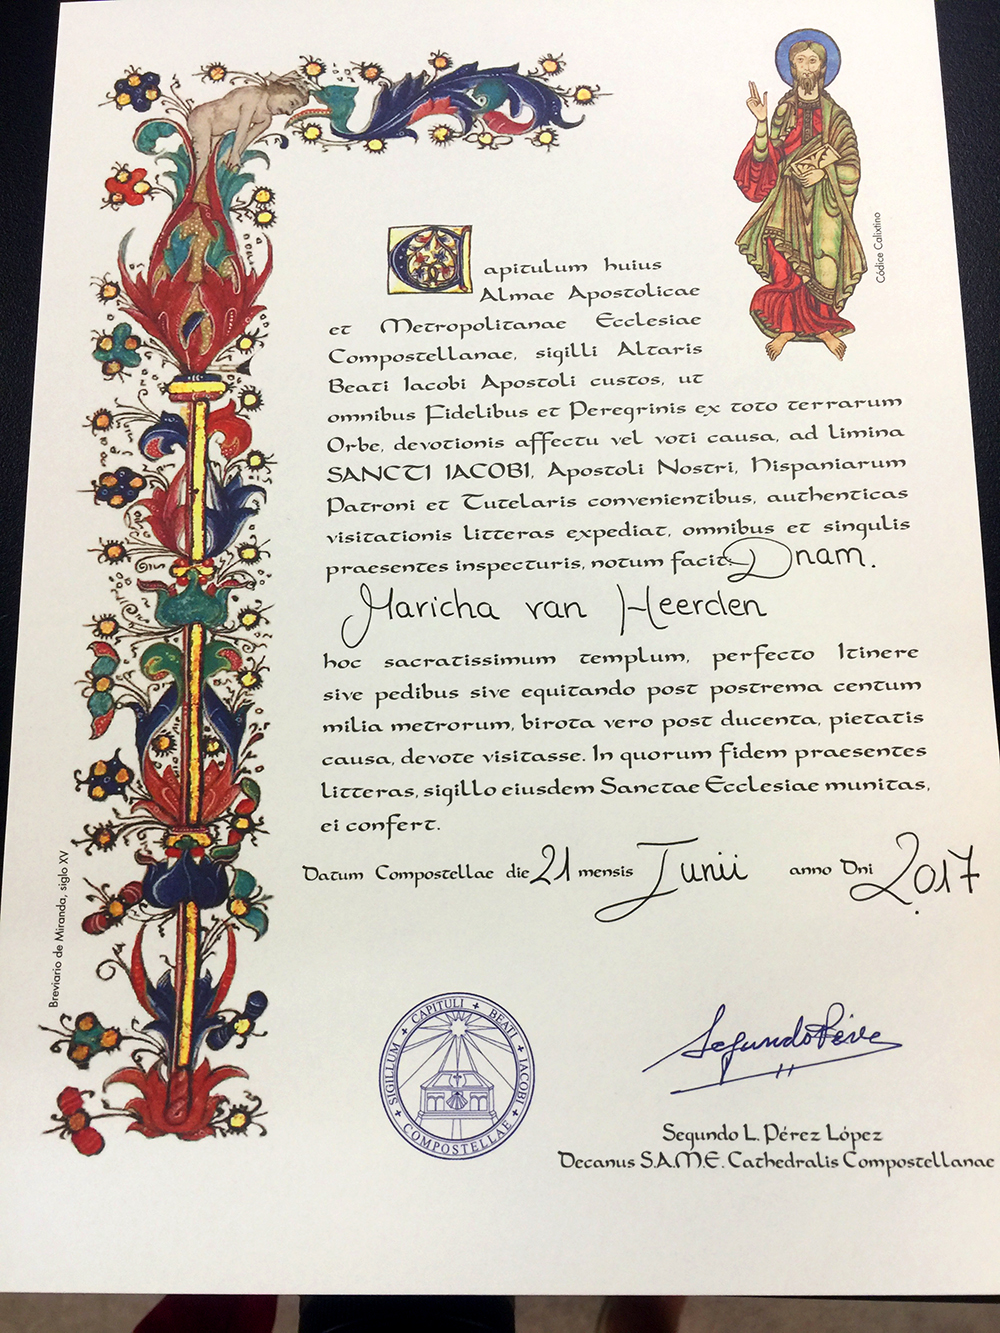 Códice Calixtino
Capitulum huius
Almae Apostolicae
et Metropolitanae Ecclesiae
Compostellanae, sigilli Altaris
Beati Iacobi Apostoli custos, ut
omnibus Fidelibus et Peregrinis ex toto terrarum
Orbe, devotionis affectu vel voti causa, ad limina
SANCTI IACOBI, Apostoli Nostri, Hispaniarum
Patroni et Tutelaris convenientibus, authenticas
visitationis litteras expediat, omnibus et singulis
praesentes inspecturis, notum facit: Dnam.
Maricha van Heerden
hoc sacratissimum templum, perfecto Itinere
sive pedibus sive equitando post postrema centum
milia metrorum, birota vero post ducenta, pietatis
causa, devote visitasse. In quorum fidem praesentes
litteras, sigillo eiusdem Sanctae Ecclesiae munitas,
ei confert.
Datum Compostellae die 21 mensis Iunii anno Dni 2.017
Breviario de Miranda, siglo XV
SIGILLUM + CAPITULI + BEATI + IACOBI +
COMPOSTELLAE +
Segundo Pérez
Segundo L. Pérez López
Decanus S.A.M.E. Cathedralis Compostellanae